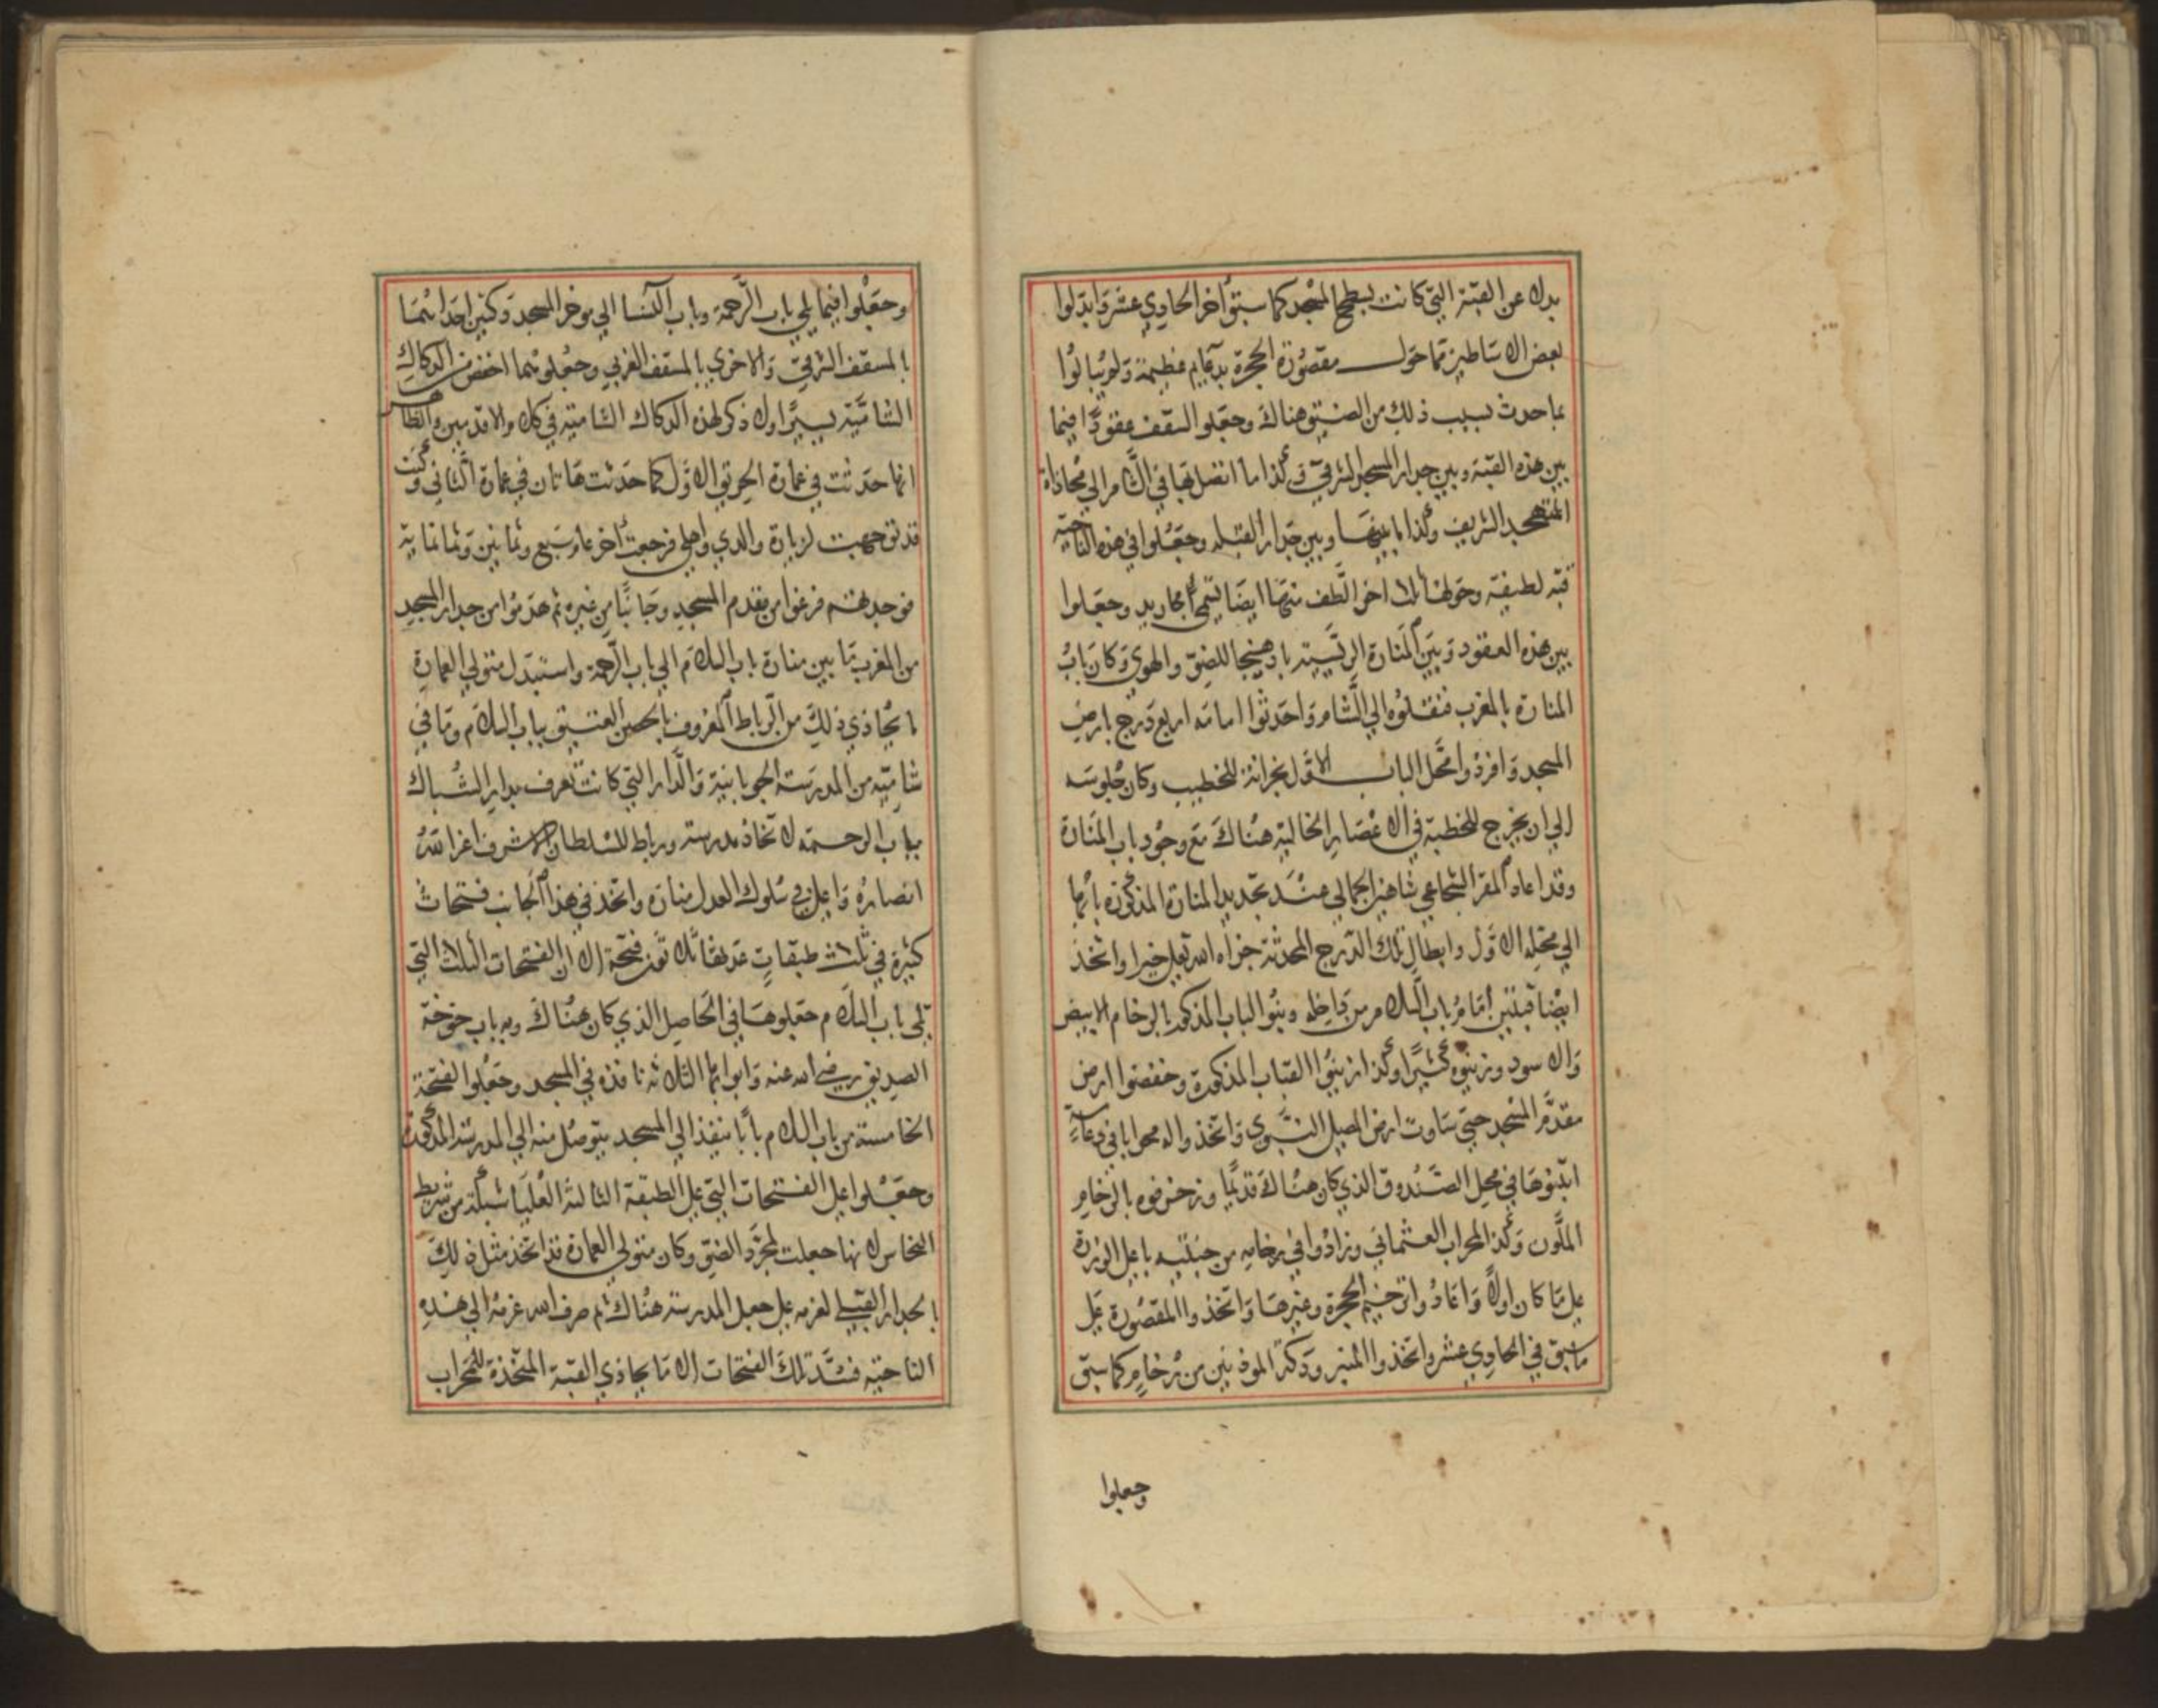 بدلا عن القبة التي كانت بسطح المسجد كما سبق اخر الحادي عشر وابدلوا
بعض الاساطين مما حول مقصورة الحجرة بدعايم عظيمة ولم يبالوا
بما حدث بسبب ذلك من الضيق هناك وجعلوا السقف عقودًا فيما
بين هذه القبة وبين جدار المسجد الشرقي وكذا ما اتصل بها في الشام الي محاذاة
المتهجد الشريف وكذا ما بينها وبين جدار القبلة وجعلوا في هذه الناحية
قبة لطيفة وحولها ثلاث اخر الطف منها ايضا تسمي مجاريد وجعلوا
بين هذه العقود وبين المنارة الريسية بادهنجا للضوء والهوي وكان باب
المنارة بالمغرب فنقلوه الي الشام واحدثوا امامه اربع درج بارض
المسجد وافردوا محل الباب الاول بخزانة للخطيب وكان جلوسه
الي ان يخرج للخطبة في الاعصار الخالية هناك مع وجود باب المنارة
وقد اعاد المقر الشجاعي شاهين الجمالي عند تجديد المنارة المذكورة بابها
الي محله الاول وابطال تلك الدرج المحدثة جزاه الله تعالي خيرا واتخذ
ايضا قبتين امام باب السلام من داخله وبنوا الباب المذكور بالرخام الابيض
والاسود وزينوه كثيرًا وكذا زينوا القباب المذكورة وخفضوا ارض
مقدم المسجد حتي ساوت ارض المصلي النبوي واتخذوا له محرابا في دعامة
ابتنوها في محل الصندوق الذي كان هناك قديمًا وزخرفوه بالرخام
الملون وكذا المحراب العثماني وزادوا في رخامه من جنبتيه باعلي الوزرة
علي ما كان اولًا واعادوا ترخيم الحجرة وغيرها واتخذوا المقصورة علي
ما سبق في الحادي عشر واتخذوا المنبر ودكة الموذنين من رخام كما سبق
وجعلوا
وجعلوا فيما يلي باب الرحمة وباب النسا الي موخر المسجد دكتين احداهما
بالمسقف الشرقي والاخري بالمسقف الغربي وجعلوهما اخفض من الدكاك
الشامية يسيرًا ولا ذكر لهذه الدكاك الشامية في كلام الاقدمين والظاهر
انها حدثت في عمارة الحريق الاول كما حدثت هاتان في عمارة الثاني وكنت
قد توجهت لزيارة والدي واهلي فرجعت اخر عام سبع وثمانين وثمانماية
فوجدتهم فرغوا من مقدم المسجد وجانبًا من غيره ثم هدموا من جدار المسجد
من المغرب ما بين منارة باب السلام الي باب الرحمة واستبدل متولي العمارة
ما يحاذي ذلك من الرباط المعروف بالحصن العتيق بباب السلام وما في
شاميه من المدرسة الجوبانية والدار التي كانت تعرف بدار الشباك
بباب الرحمة لاتخاذ مدرسة ورباط للسلطان الاشرف اعز الله
انصاره واعلي في سلوك العدل مناره واتخذ في هذا الجانب فتحات
كثيرة في ثلاث طبقات عدتها ثلاثون فتحة الا ان الفتحات الثلاث التي
تلي باب السلام جعلوها في الحاصل الذي كان هناك وبه باب خوخة
الصديق رضي الله عنه وابوابها الثلاثة نافذة في المسجد وجعلوا الفتحة
الخامسة من باب السلام بابًا ينفذ الي المسجد يتوصل منه الي المدرسة المذكورة
وجعلوا علي الفتحات التي علي الطبقة الثالثة العليا شبكة من شريط
النحاس لانها جعلت لمجرد الضوء وكان متولي العمارة قد اتخذ مثل ذلك
بالجدار القبلي لعزمه علي جعل المدرسة هناك ثم صرف الله عزمه الي هذه
الناحية فسد تلك الفتحات الا ما يحاذي القبة المتخذة للمحراب